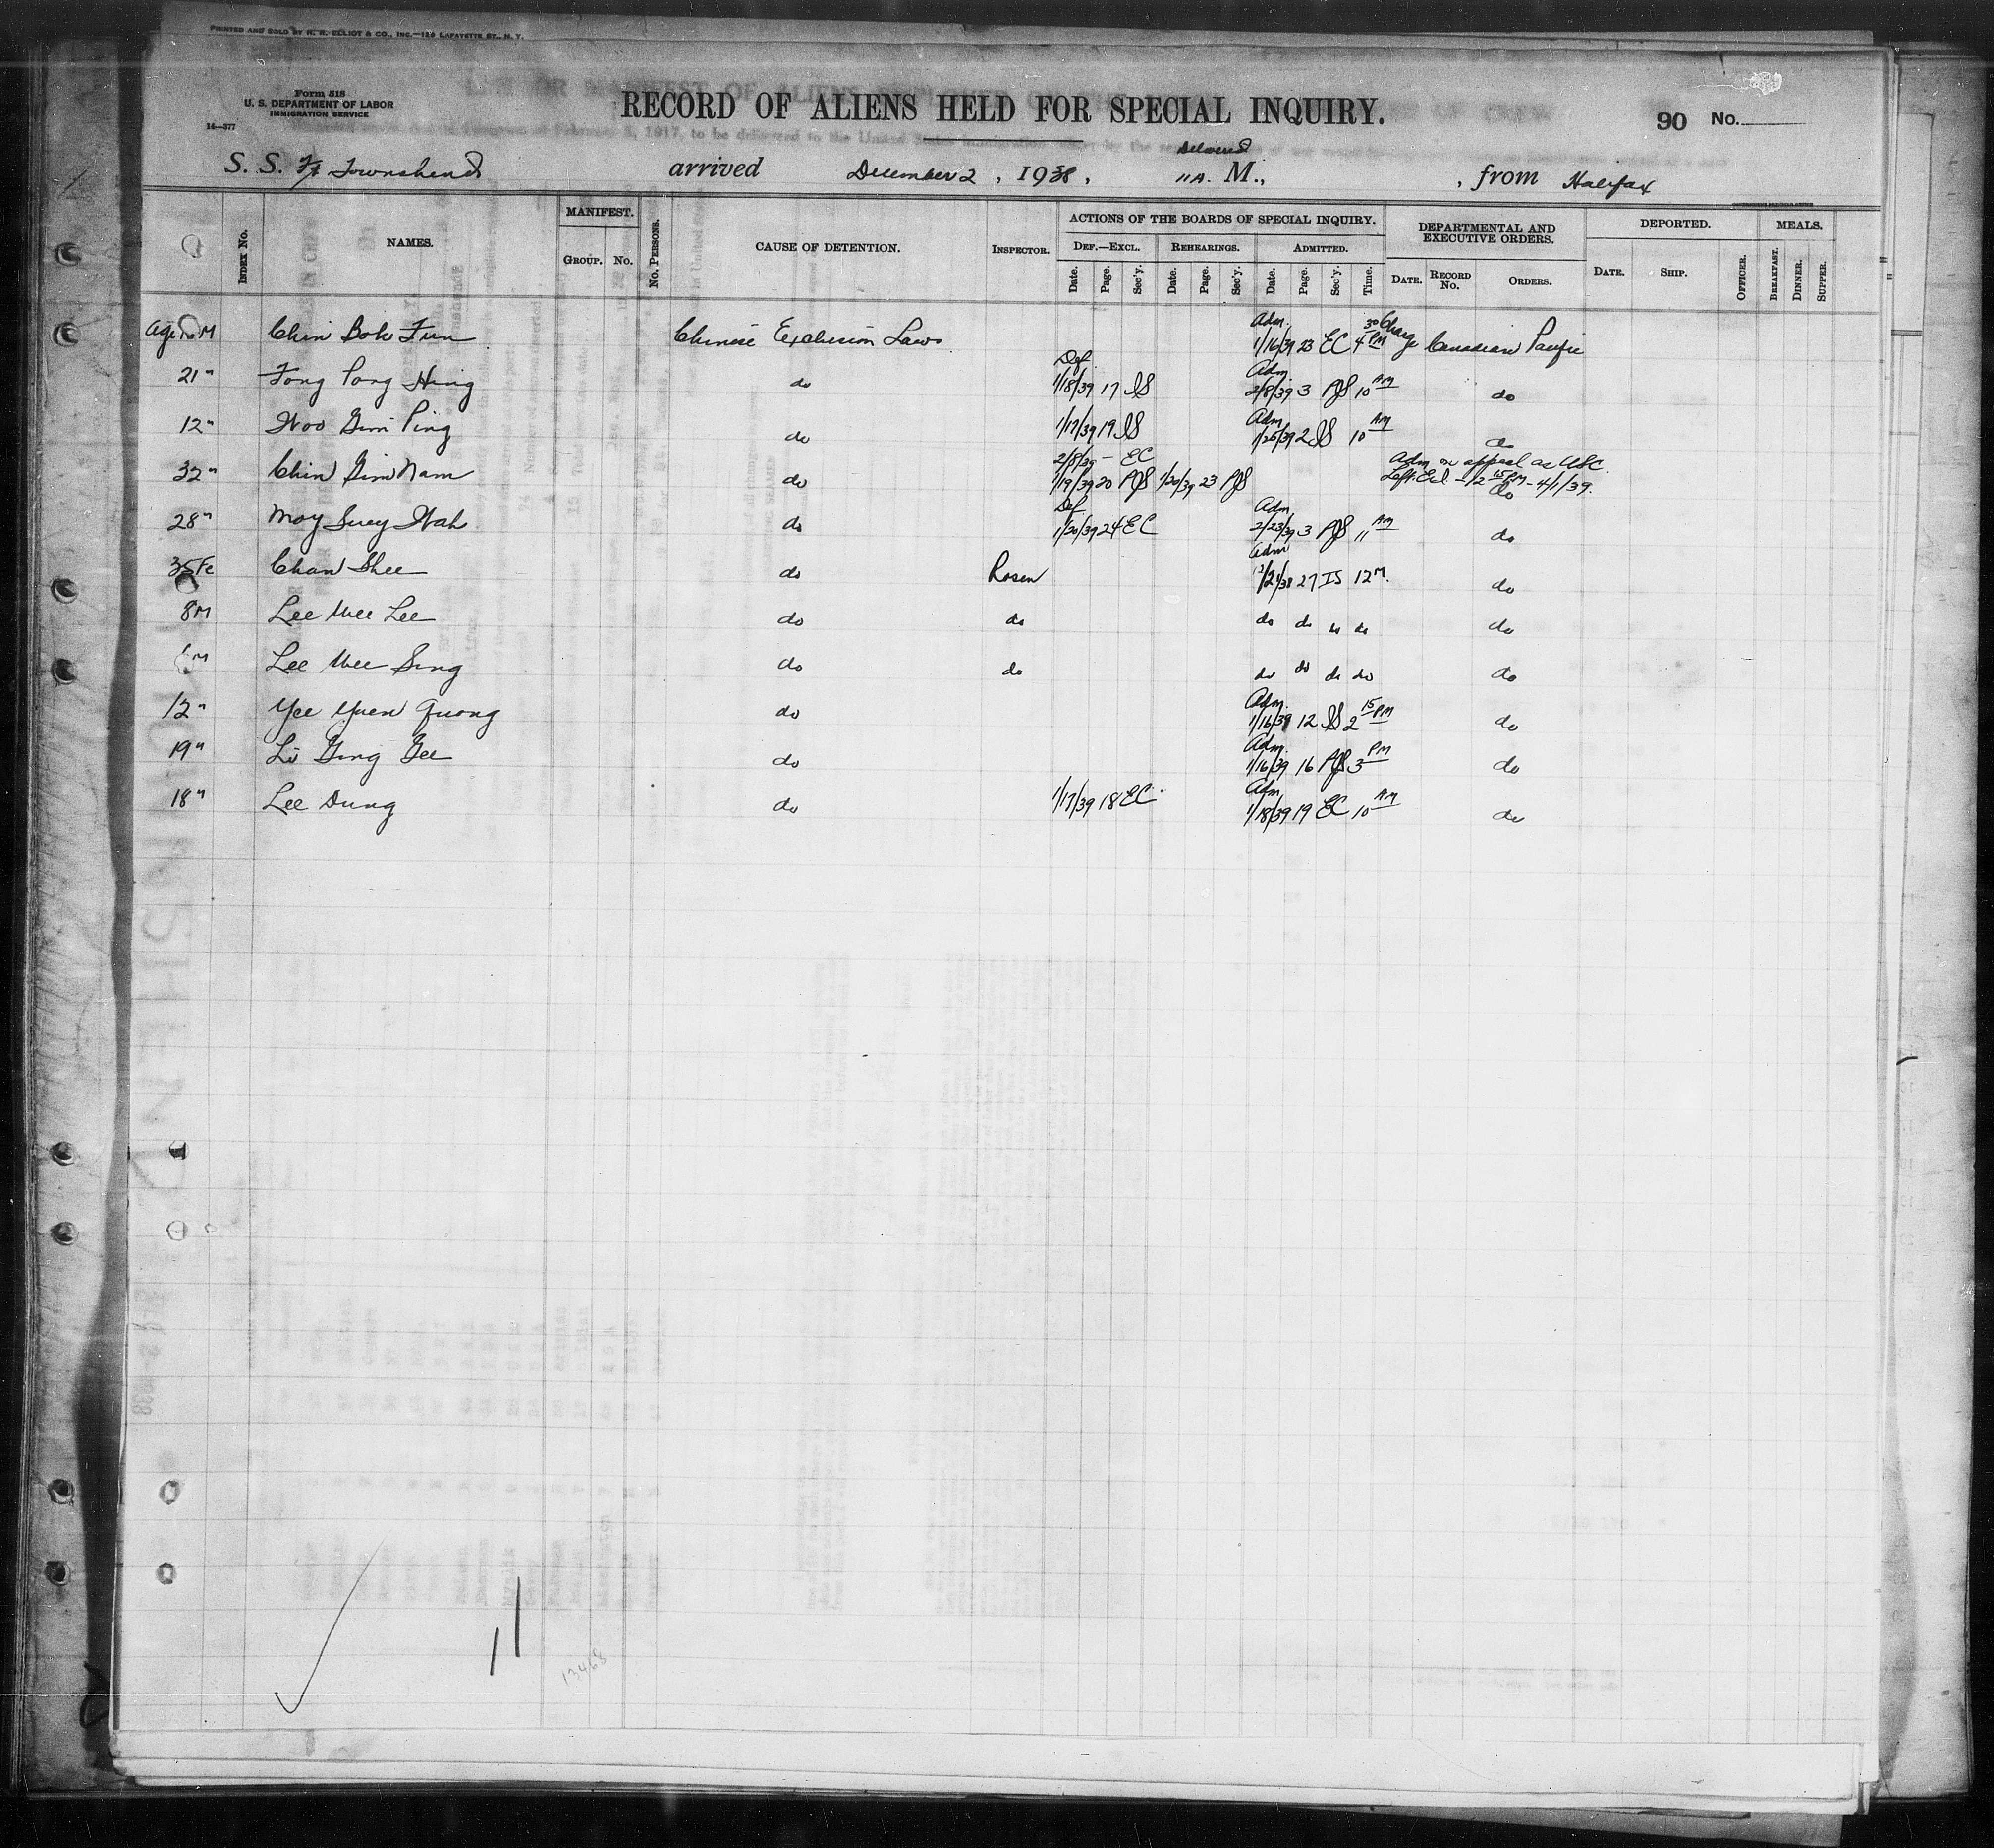 PRINTED AND SOLD BY N. R. ELLIOT & CO., INC.—120 LAFAYETTE ST., N. Y.
Form 518
U. S. DEPARTMENT OF LABOR
IMMIGRATION SERVICE
14—377
RECORD OF ALIENS HELD FOR SPECIAL INQUIRY.
90 No.
S. S. Ft Townshend arrived December 2, 1938, 11 A. M., from Halifax
MANIFEST. ACTIONS OF THE BOARDS OF SPECIAL INQUIRY. DEPARTMENTAL AND EXECUTIVE ORDERS. DEPORTED. MEALS.
INDEX No. NAMES. GROUP. No. No. PERSONS. CAUSE OF DETENTION. INSPECTOR. DEF.—EXCL. REHEARINGS. ADMITTED.
Date. Page. Sec'y. Date. Page. Sec'y. Date. Page. Sec'y. Time. DATE. RECORD No. ORDERS. DATE. SHIP. OFFICER. BREAKFAST. DINNER. SUPPER.
Age M Chin Bok Fun Chinese Exclusion Laws Adm. 1/16/39 23 EC 4 30 PM Charge Canadian Pacific
21 " Fong Pong Hing do Def 1/18/39 17 SS Adm 2/8/39 3 AJS 10 AM do
12 " Woo Gim Ping do 1/17/39 19 SS Adm 1/25/39 2 SS 10 AM do
2/8/39 – EC Adm on appeal as USC.
32 " Chin Gim Nam do 1/19/39 20 AJS 1/20/39 23 AJS Left E.I. – 12 15 PM – 4/1/39. do
28 " Moy Suey Wah do Def 1/20/39 24 EC Adm 2/23/39 3 AJS 11 AM do
35 Fe Chan Shee do Rosen Adm 12/21/38 27 IS 12 M. do
8 M Lee Wee Lee do do do do do do do
M Lee Wee Sing do do do do do do do
12 " Yee Yuen Quong do Adm. 1/16/39 12 SS 2 15 PM do
19 " Li Ging Gee do Adm. 1/16/39 16 AJS 3 PM do
18 " Lee Dung do 1/17/39 18 EC Adm 1/18/39 19 EC 10 AM do
11
13468